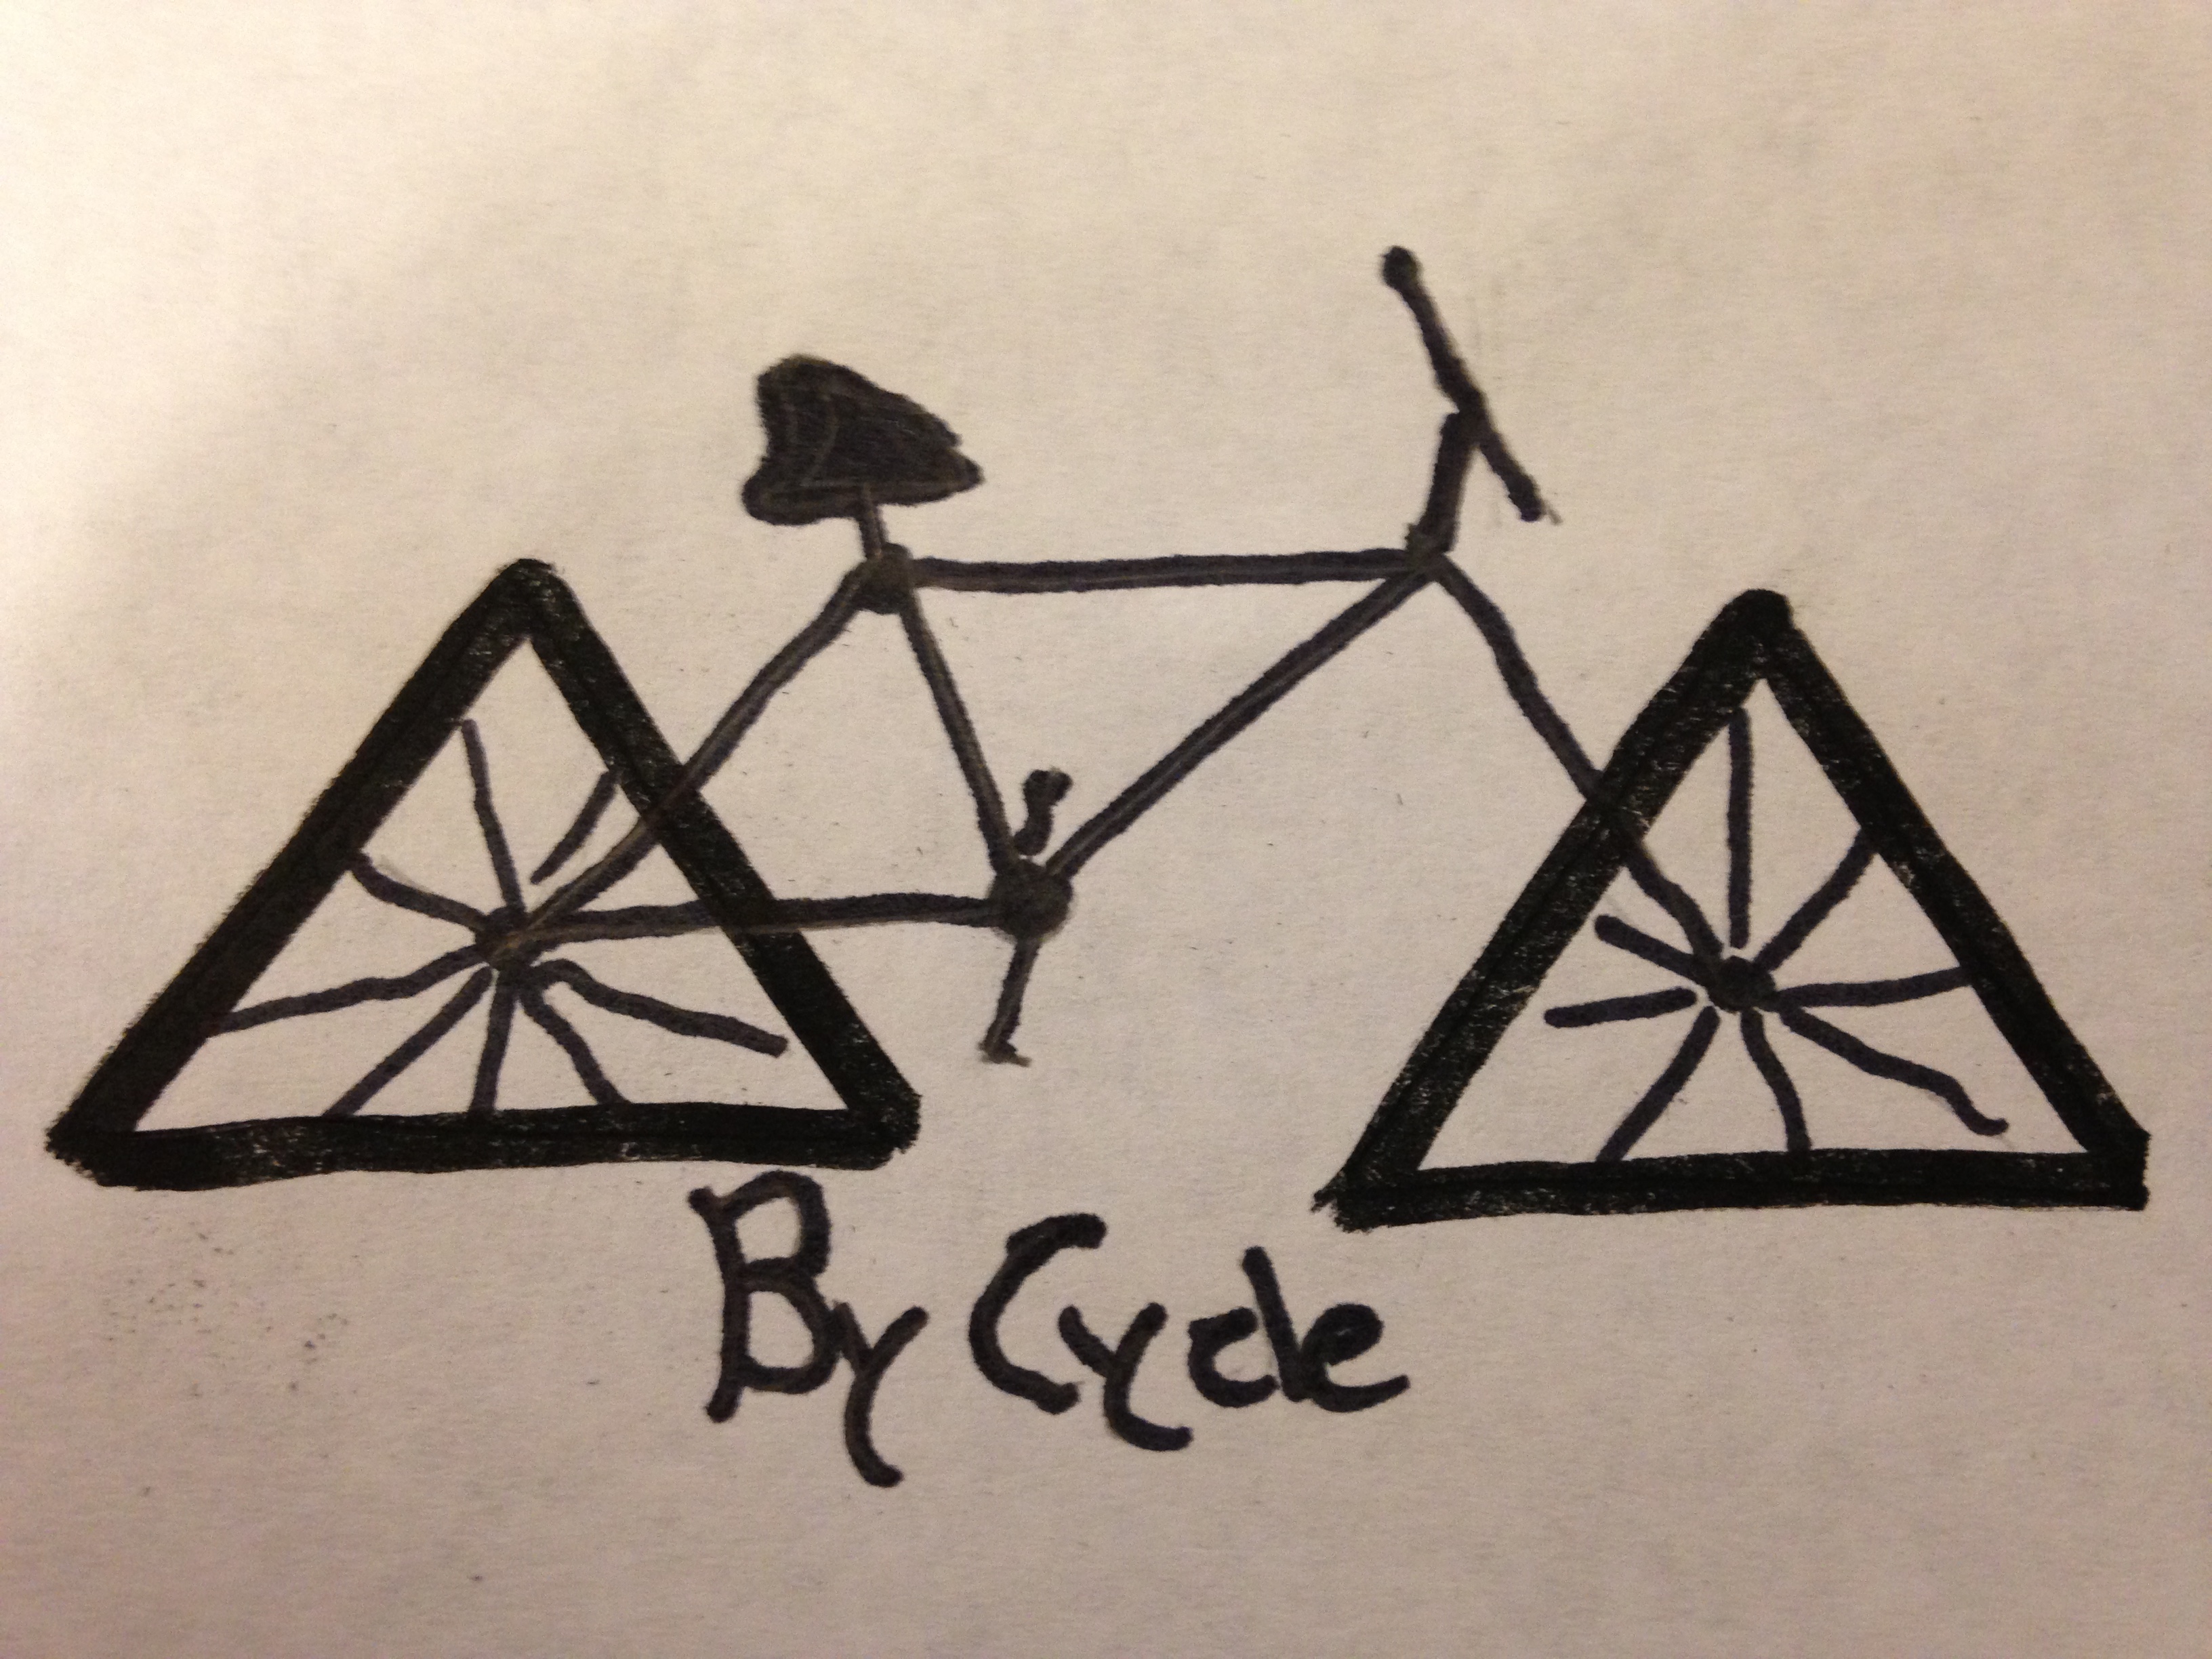 By Cycle